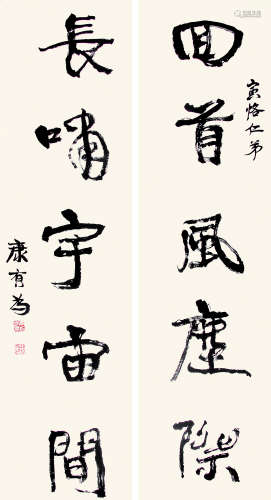 寅恪仁弟
回首風塵際
長嘯宇宙間
康有為